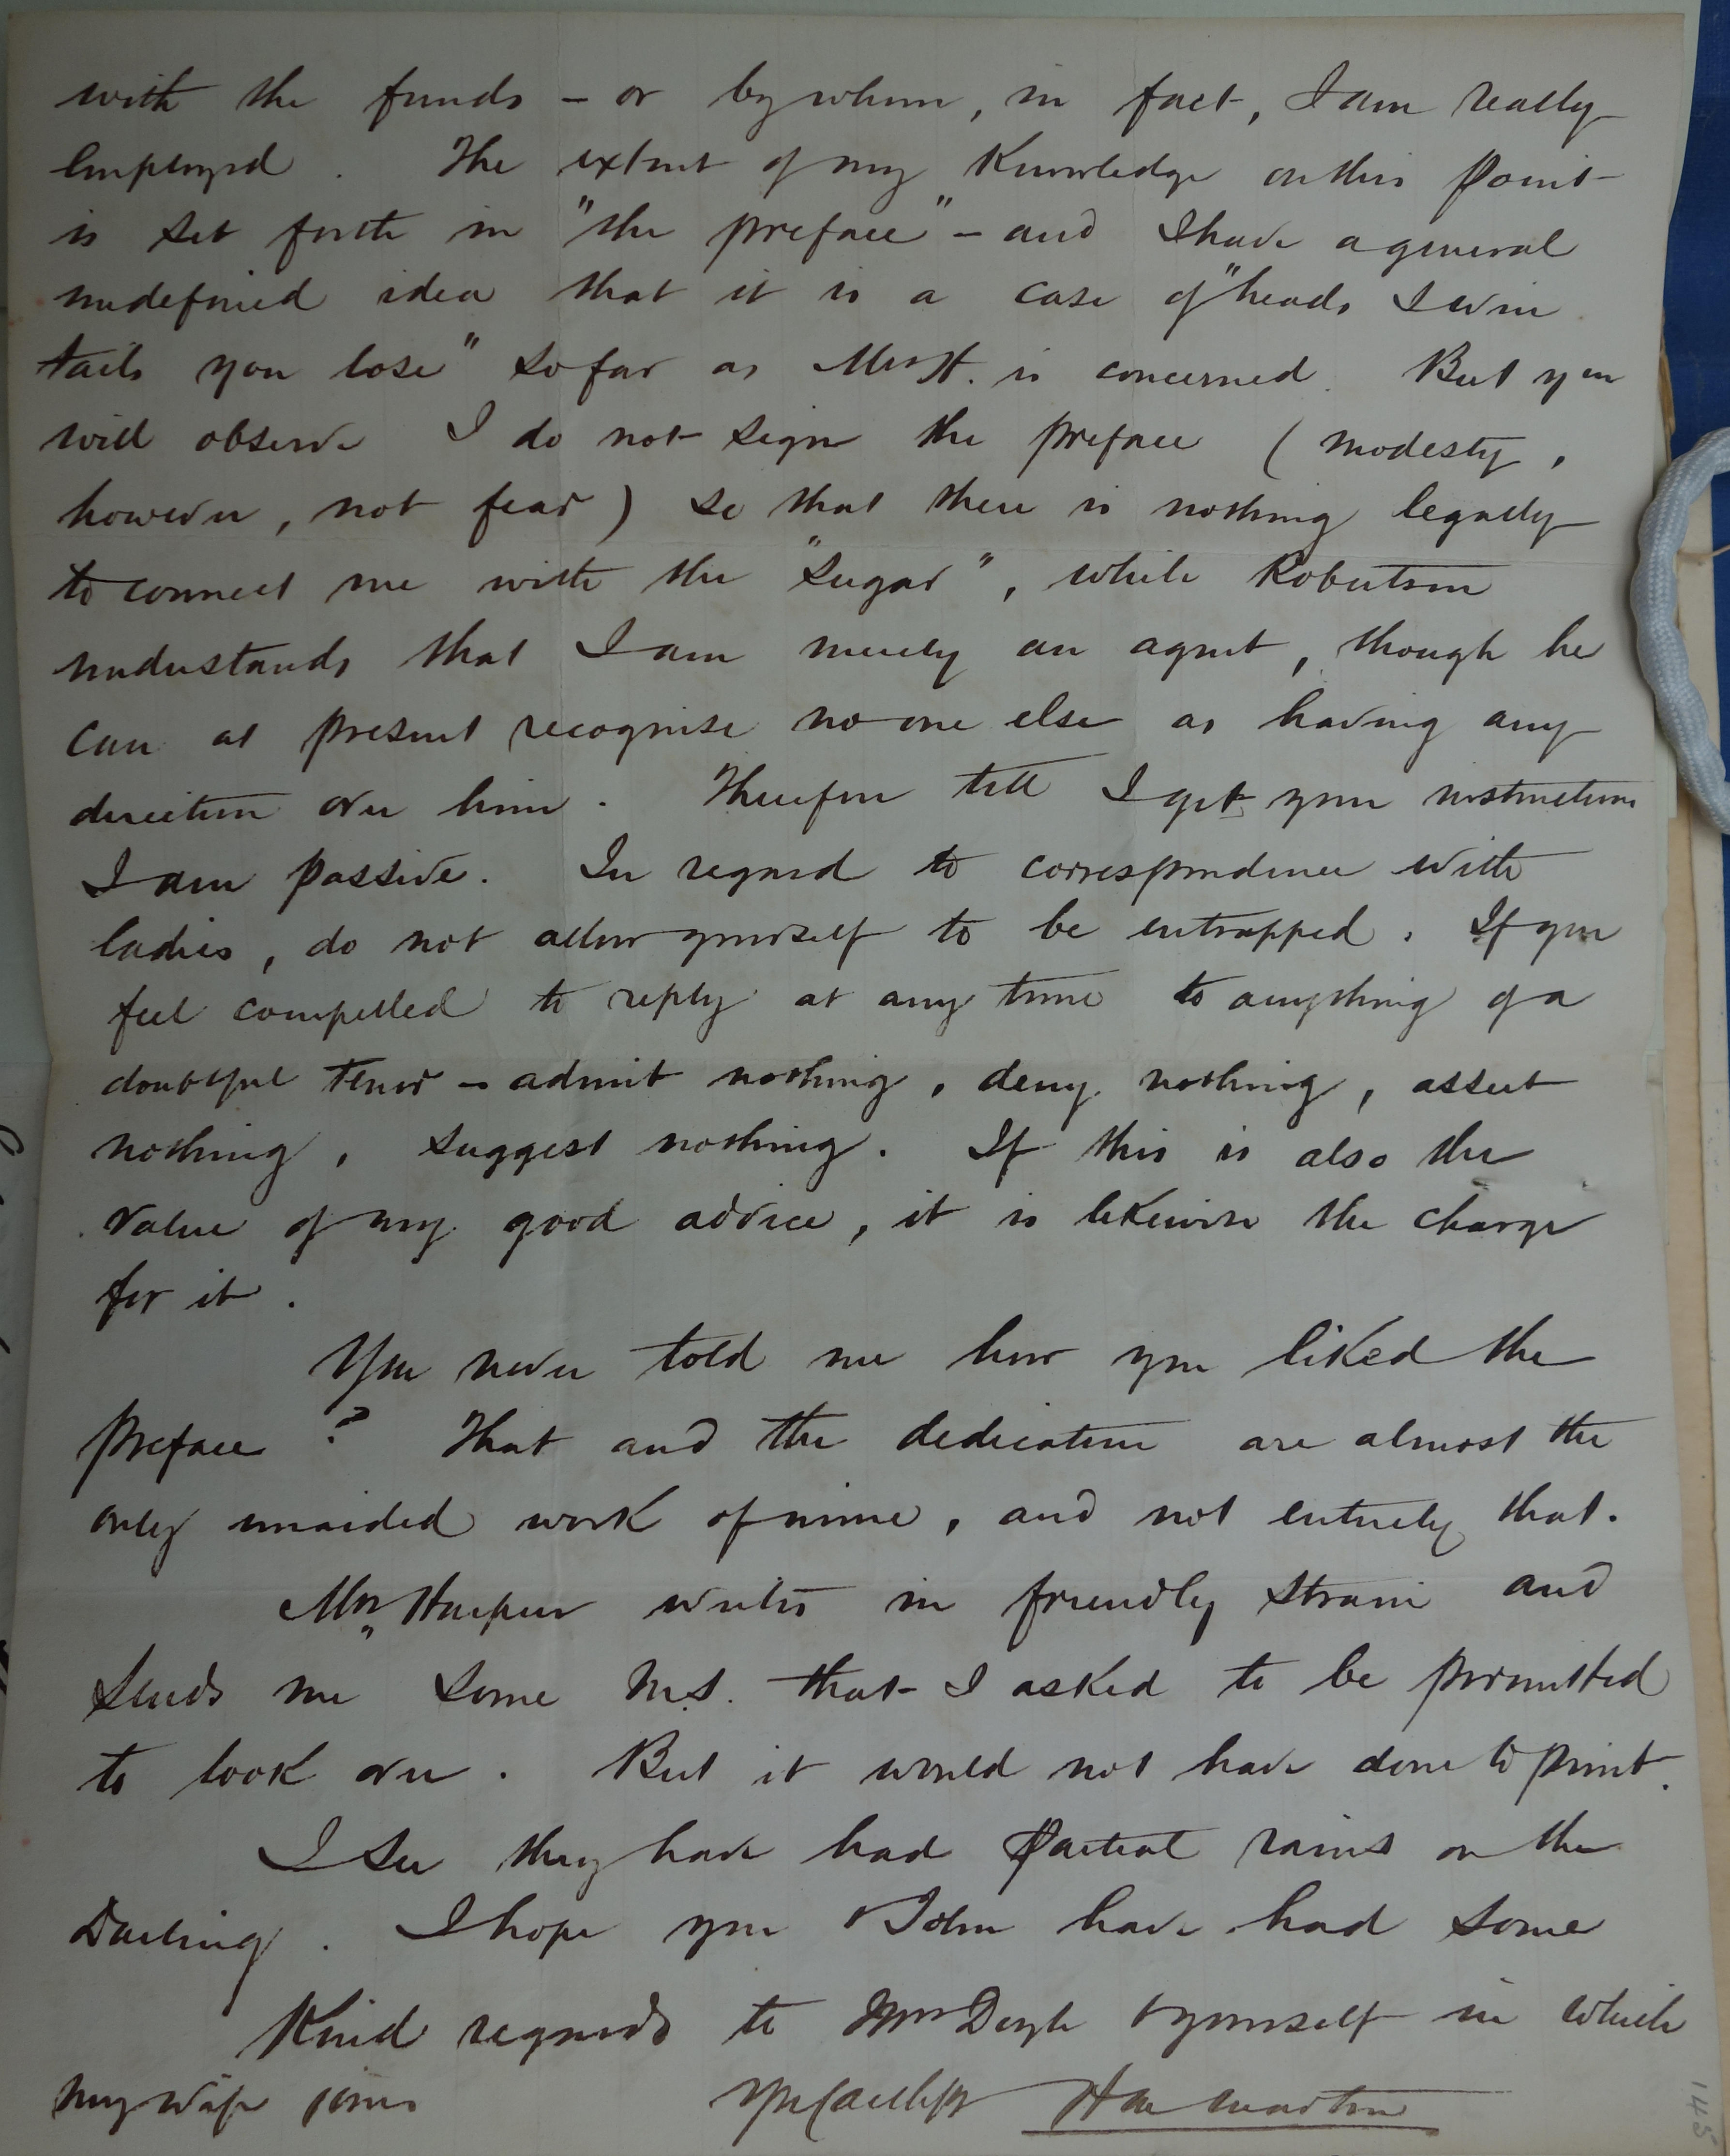 with the funds – or by whom, in fact, I am really
employed. The extent of my knowledge on this point
is set forth in "the preface" – and I have a general
undefined idea that it is a case of "heads I win
tails you lose" so far as Mrs H. is concerned. But you
will observe I do not sign the preface (modesty,
however, not fear) so that there is nothing legally
to connect me with the "sugar", while Robertson
understands that I am merely an agent, though he
can at present recognise no one else as having any
direction over him. Therefore till I get your instructions
I am passive. In regard to correspondence with
ladies, do not allow yourself to be entrapped. If you
feel compelled to reply at any time to anything of a
doubtful tenor – admit nothing, deny nothing, assert
nothing, suggest nothing. If this is also the
value of my good advice, it is likewise the charge
for it.
You never told me how you liked the
preface? That and the dedication are almost the
only unaided work of mine, and not entirely that.
Mrs Harpur writes in friendly strain and
sends me some M.S. that I asked to be permitted
to look over. But it would not have done to print.
I see they have had partial rains on the
Darling. I hope you & John have had some
Kind regards to Mrs Doyle & yourself in which
my wife joins Yrs faithfly H M Martin
145